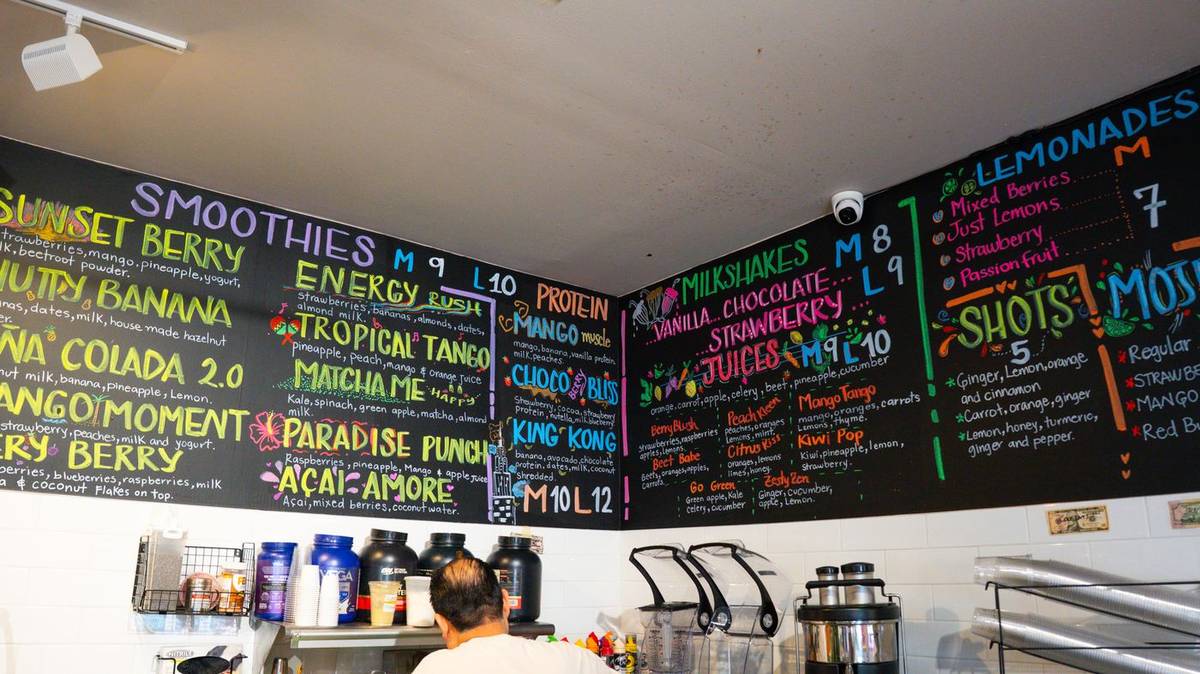 SMOOTHIES M 9 L10
SUNSET BERRY
strawberries, mango, pineapple, yogurt,
milk, beetroot powder.
NUTTY BANANA
dates, milk, house made hazelnut
COLADA 2.0
milk, banana, pineapple, Lemon.
MANGO MOMENT
strawberry, peaches, milk and yogurt.
BERRY
blueberries, raspberries, milk
& coconut Flakes on top.
ENERGY RUSH
strawberries, bananas, almonds, dates,
almond milk.
TROPICAL TANGO
pineapple, peach, mango and orange juice
MATCHA ME HAPPY
Kale, spinach, green apple, matcha, almond
milk.
PARADISE PUNCH
Raspberries, pineapple, Mango & apple juice
AÇAI AMORE
Açai, mixed berries, coconut water.
PROTEIN
MANGO muscle
mango, banana, vanilla protein,
milk, peaches.
CHOCO BLISS
Strawberry, cocoa, strawberry
protein, nutella, milk, blueberry
KING KONG
banana, avocado, chocolate
protein, dates, milk, coconut
shredded.
M10 L12
MILKSHAKES M 8
VANILLA... CHOCOLATE L 9
STRAWBERRY
JUICES M9 L10
orange, carrot, apple, celery, beet, pineapple, cucumber
Berry Blush
strawberries, raspberries
apples, Lemons.
Beet Babe
Beets, oranges, apples,
carrots.
Go Green
Green apple, Kale
celery, cucumber
Peach Keen
peaches, oranges
lemons, mint.
Citrus Kiss
oranges, lemons
limes, honey.
Zesty Zen
Ginger, cucumber,
apple, Lemon.
Mango Tango
mango, oranges, carrots
Lemons, thyme.
Kiwi Pop
Kiwi, pineapple, lemon,
strawberry.
LEMONADES
M
Mixed Berries
Just Lemons
Strawberry
Passion fruit
7
SHOTS
5
Ginger, Lemon, orange
and cinnamon
Carrot, orange, ginger
Lemon, honey, turmeric,
ginger and pepper.
Regular
MANGO
Red Bu
VEGA